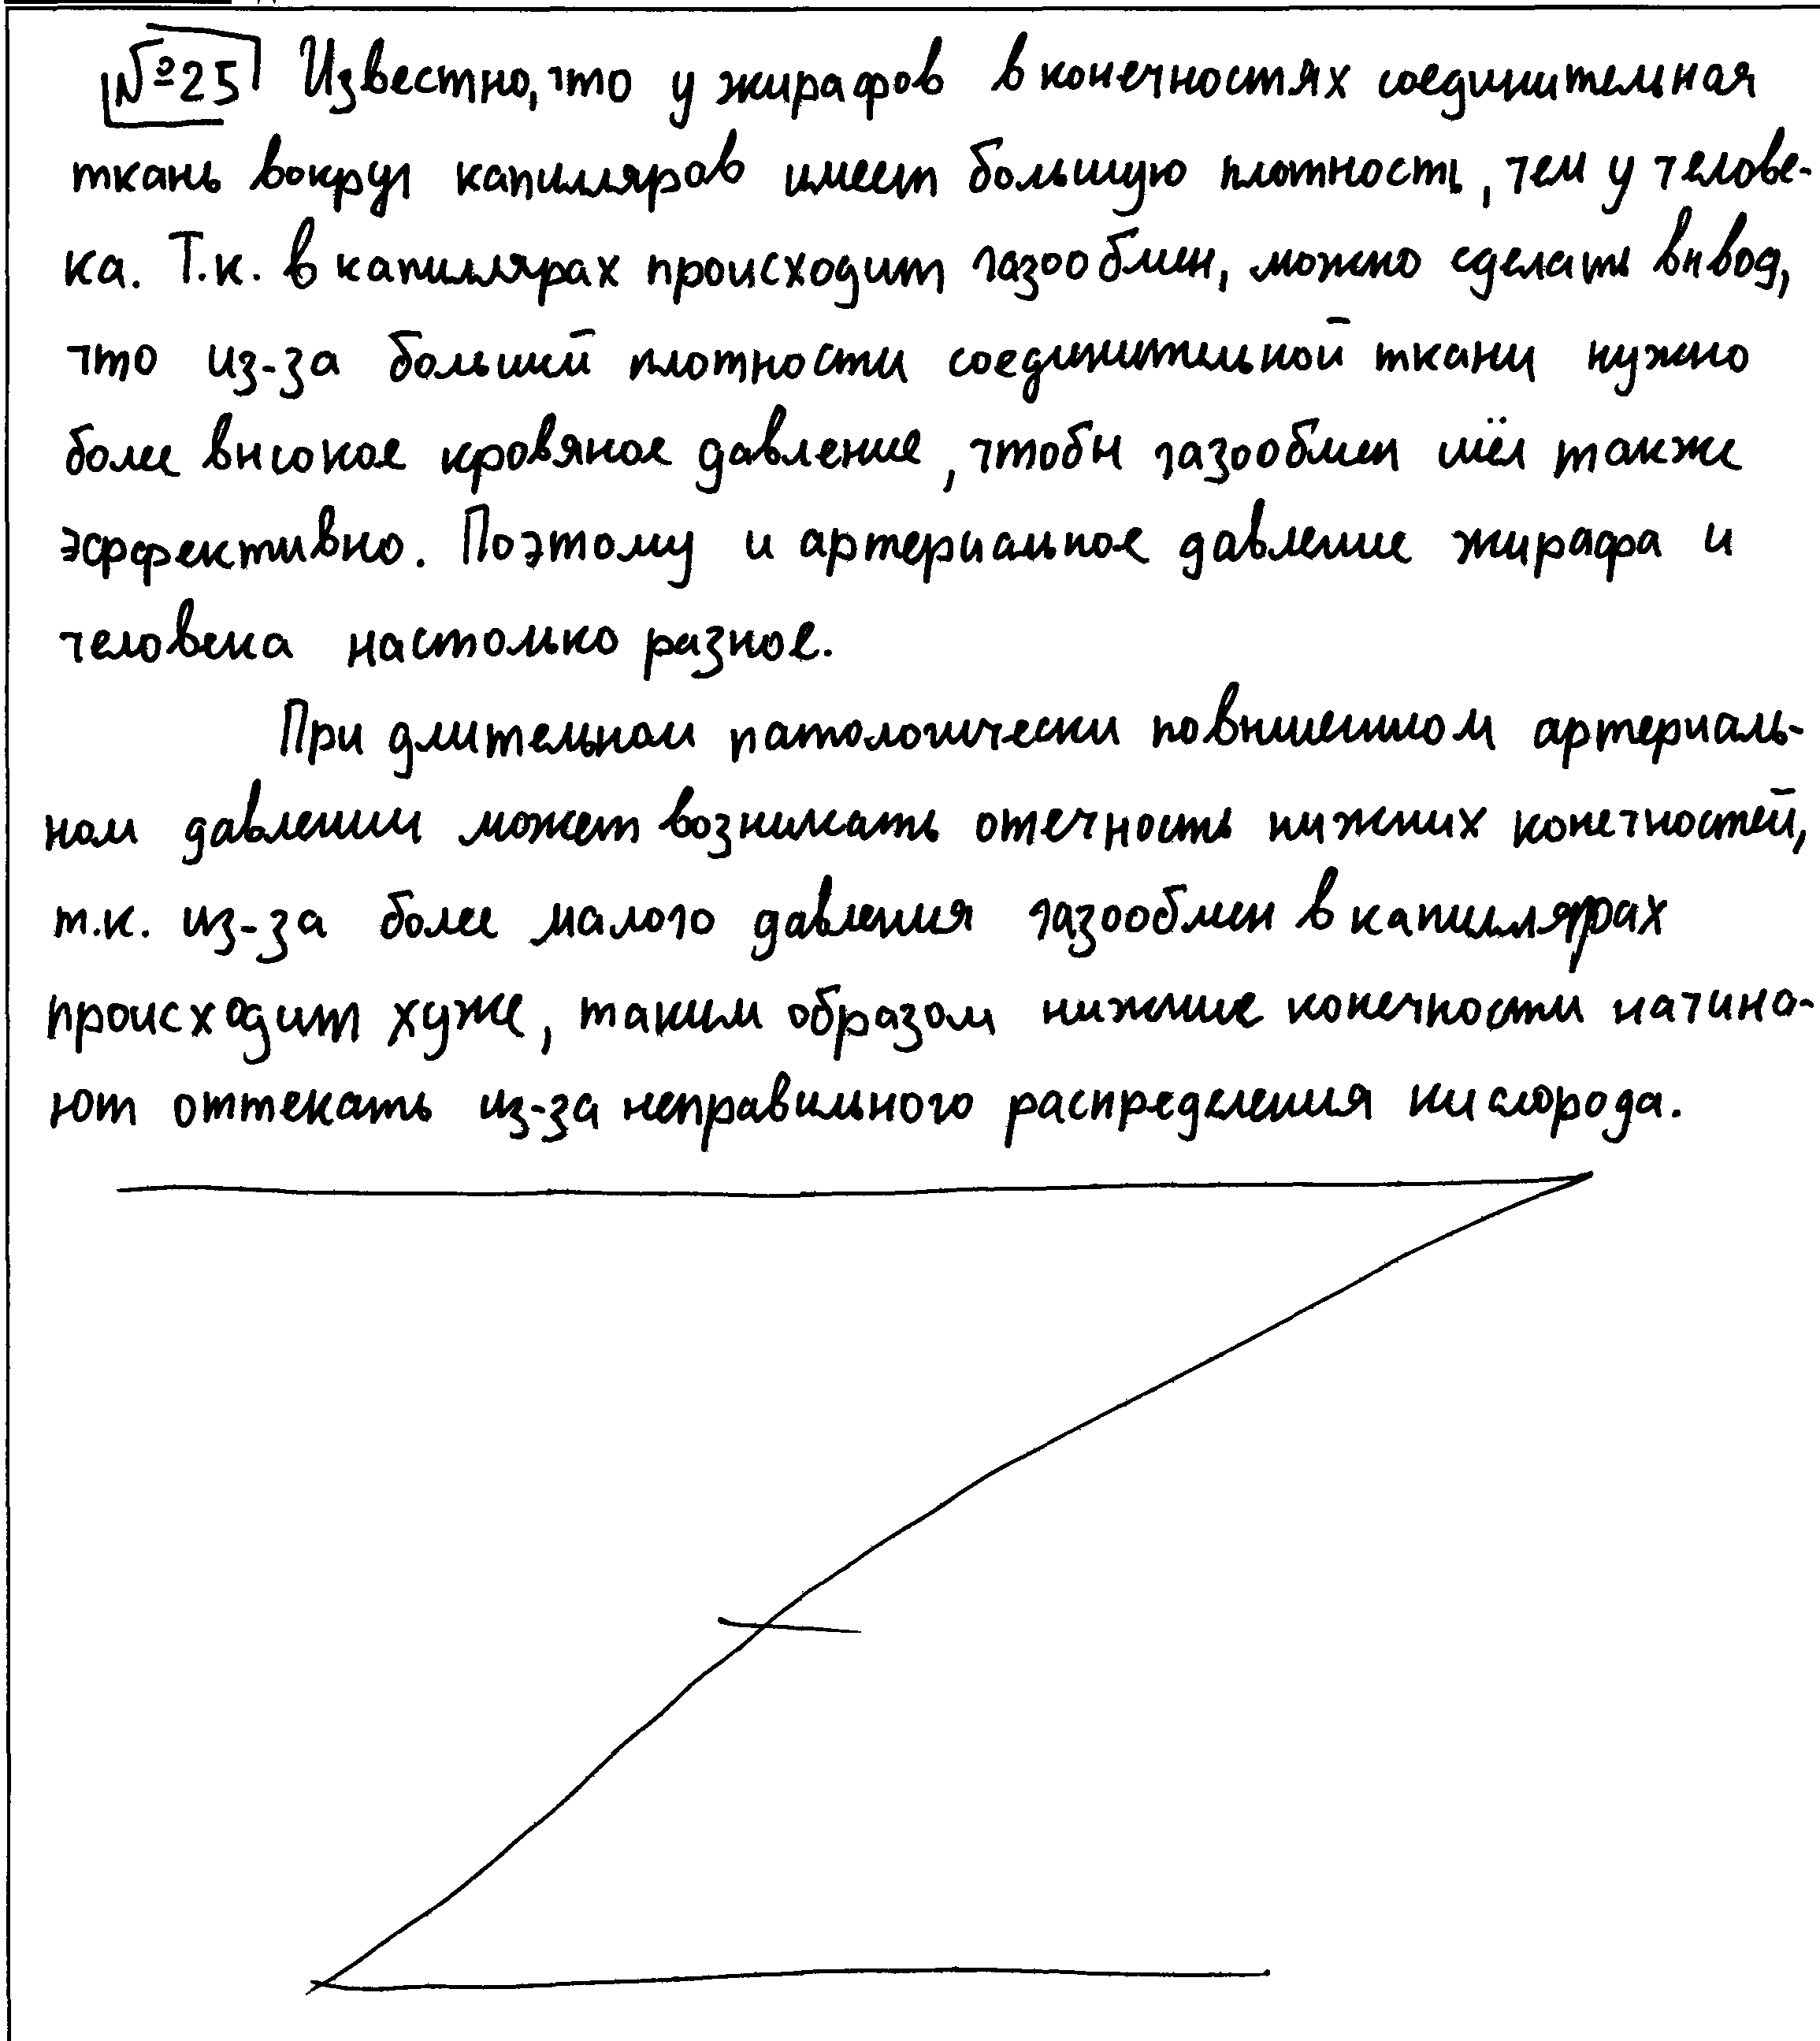 №25 Известно, что у жирафов в конечностях соединительная
ткань вокруг капилляров имеет большую плотность, чем у челове-
ка. Т.к. в капиллярах происходит газообмен, можно сделать вывод,
что из-за большей плотности соединительной ткани нужно
более высокое кровяное давление, чтобы газообмен шёл также
эффективно. Поэтому и артериальное давление жирафа и
человека настолько разное.
При длительном патологически повышенном артериаль-
ном давлении может возникать отечность нижних конечностей,
т.к. из-за более малого давления газообмен в капиллярах
происходит хуже, таким образом нижние конечности начина-
ют оттекать из-за неправильного распределения кислорода.